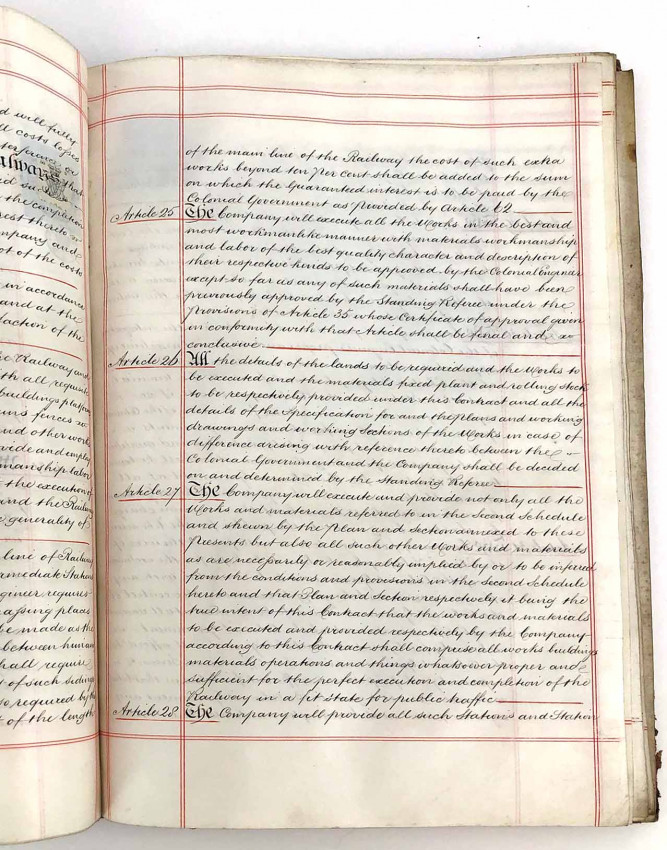 d will fully
ll costs losses
terference or
ailways
the completion
rest thereto
mpany and
ot of the costs
in accordance
and at the
faction of the
he Railway and
ith all requisite
buildings platforms
urns fences
and other works
vide and employ
manship labor
the execution
and the Railway
e generality of
line of Railway
rmediate Stations
gineer requires
passing places
be made as the
between human
hall require
t of such sidings
so required by the
t of the length
of the main line of the Railway the cost of such extra
works beyond ten per cent shall be added to the sum
on which the Guaranteed interest is to be paid by the
Colonial Government as provided by Article 62
Article 25 The Company will execute all the Works in the best and
most workmanlike manner with materials workmanship
and labor of the best quality character and description of
their respective kinds to be approved by the Colonial Engineer
except so far as any of such materials shall have been
previously approved by the Standing Referee under the
Provisions of Article 35 whose Certificate of approval given
in conformity with that Article shall be final and
conclusive
Article 26 All the details of the lands to be required and the Works to
be executed and the materials fixed plant and rolling stock
to be respectively provided under this Contract and all the
details of the Specification for and the plans and working
drawings and working Sections of the Works in case of
difference arising with reference thereto between the
Colonial Government and the Company shall be decided
on and determined by the Standing Referee
Article 27 The Company will execute and provide not only all the
Works and materials referred to in the Second Schedule
and shewn by the Plan and Section annexed to these
Presents but also all such other Works and materials
as are necessarily or reasonably implied by or to be inferred
from the conditions and provisions in the Second Schedule
hereto and that Plan and Section respectively it being the
true intent of this Contract that the works and materials
to be executed and provided respectively by the Company
according to this Contract shall comprise all works buildings
materials operations and things whatsoever proper and
sufficient for the perfect execution and completion of the
Railway in a fit state for public traffic
Article 28 The Company will provide all such Stations and Station